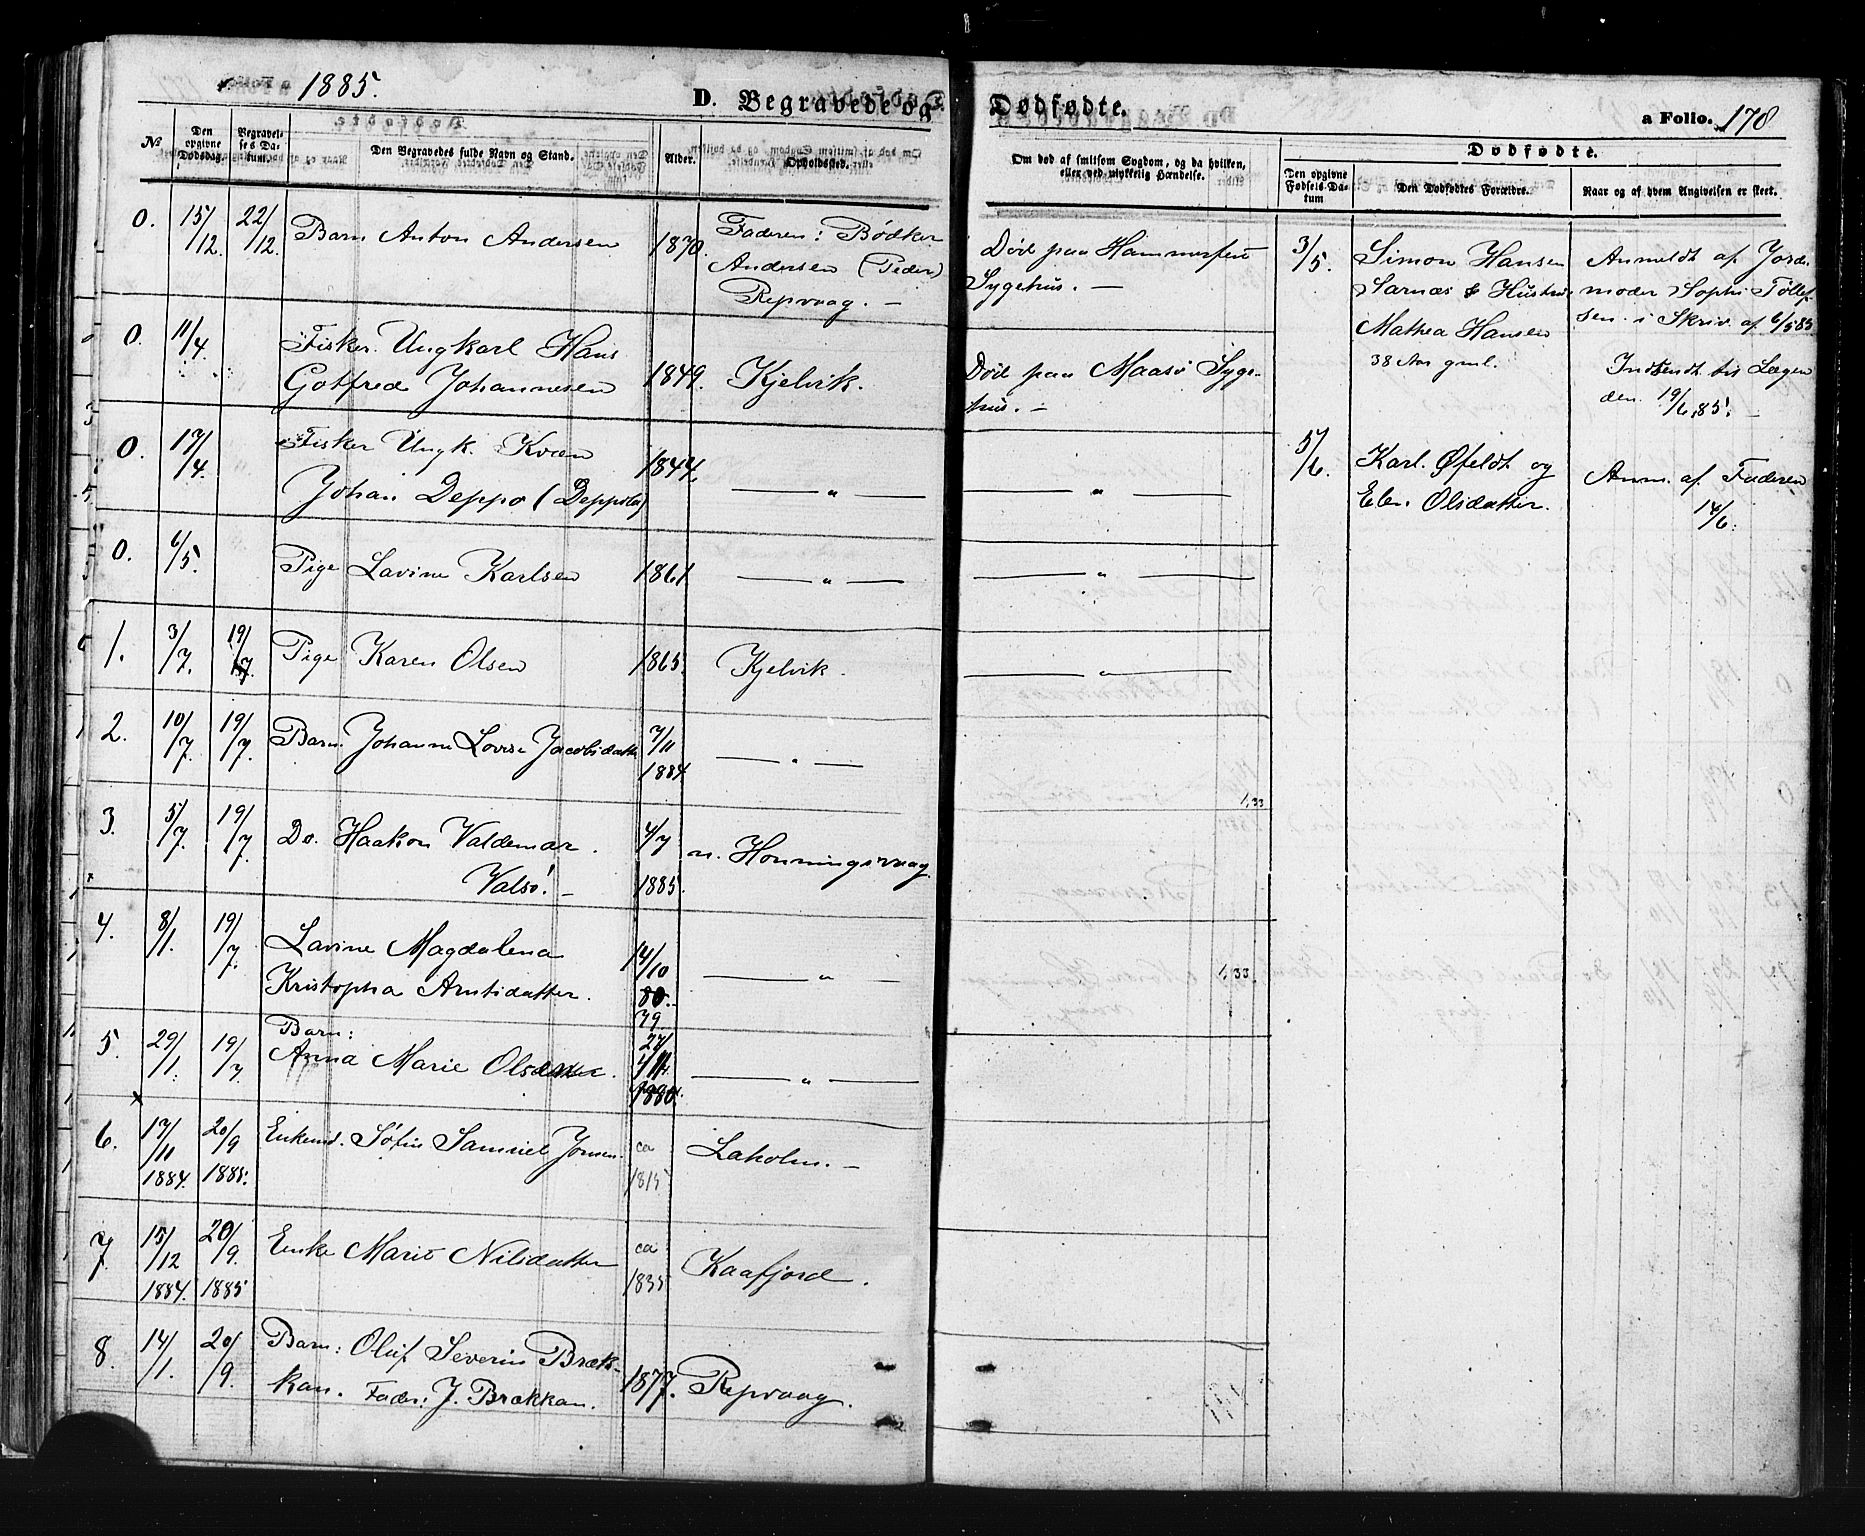 1885.
D. Begravede og Dødfødte.
a Folio. 178
№
Den opgivne Dødsdag.
Begravelses Datum.
Den Begravedes fulde Navn og Stand.
Alder.
Opholdssted.
Om død af smitsom Sygdom, og da hvilken, eller ved ulykkelig Hændelse.
Dødfødte.
Den opgivne Fødsels-Datum
Den Dødfødtes Forældre.
Naar og af hvem Angivelsen er skeet.
0. 15/12. 22/12. Barn Anton Andersen 1870. Faderen: Bødker
Andersen (Peder)
Repvaag. —
Død paa Hammerfest
Sygehus. —
3/5. Simon Hansen
Sarnæs & Hustru
Mathea Hansen
38 Aar gml.
Anmeldt af Jorde-
moder Sophi Tollef
sen. i Skriv. af 6/5 85
Indsendt til Lægen
den. 19/6.85. —
0. 11/4. Fisker. Ungkarl Hans
Gotfred Johannesen 1849. Kjelvik.
Død paa Maasø Syge-
hus. —
0. 17/4. Fisker Ungk. Kvæn
Johan Deppo (Deppola) 1844. — " — — " —
5/6. Karl. Øfeldt og
Elen. Olsdatter.
Anm. af Faderen
14/6.
0. 6/5. Pige Lavine Karlsen 1861 — " — — " —
1. 3/7. 19/7. Pige Karen Olsen 1865. Kjelvik. — " —
2. 10/7. 19/7. Barn. Johanne Lovise Jacobsdatter 7/11
1884 — " —
3. 5/7. 19/7. Do. Haakon Valdemar. 4/7 n. Honningsvaag
Valsø! — 1885. 1,33
4. 8/1. 19/7. Lavine Magdalena 14/10
Kristopha Arntsdatter. 80. — " — 1,33.
79
5. 29/1. 19/7 Barn:
Anna Marie Olsdatter. 27/11
1880. — " —
6. 17/11 20/9 Enkemd. Søfin Samuel Jonsen. ca Laholm. —
1884. 1885. 1815
7. 15/12 20/9. Enke Marit Nilsdatter ca Kaafjord.
1884. 1885 1835
8. 14/1. 20/9. Barn: Oluf Severin Bræk-
kan. Fader: J. Brækkan. 1877. Repvaag.